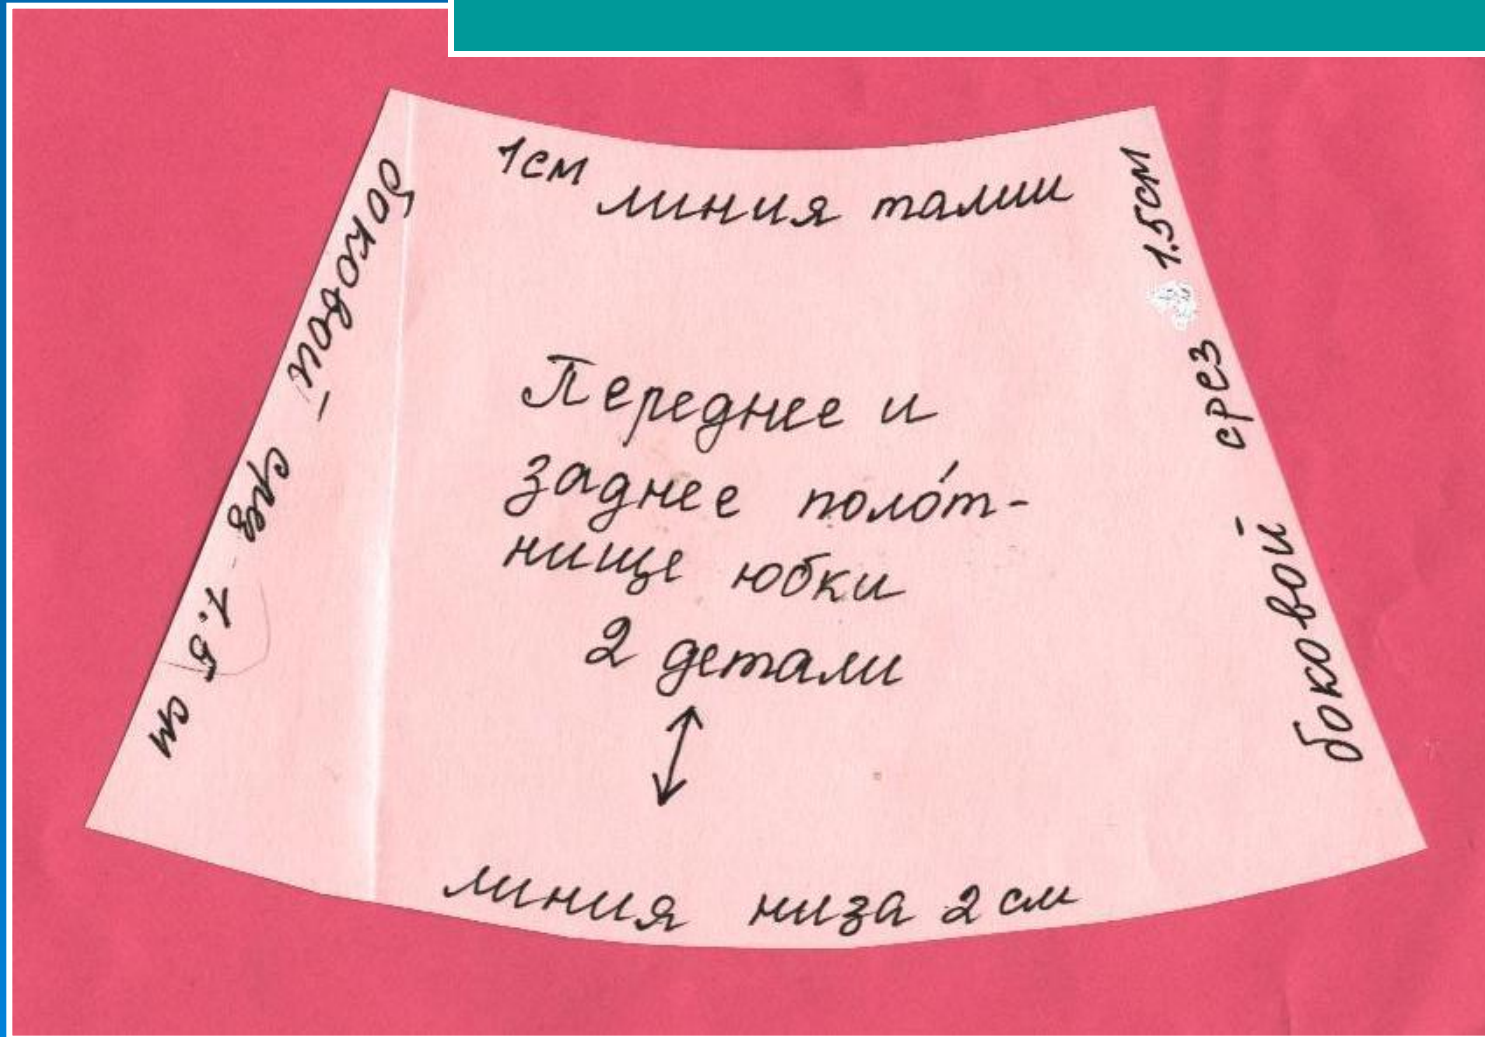 1см линия талии
боковой срез 1.5 см
Переднее и
заднее полóт-
нище юбки
2 детали
боковой срез 1.5см
линия низа 2 см